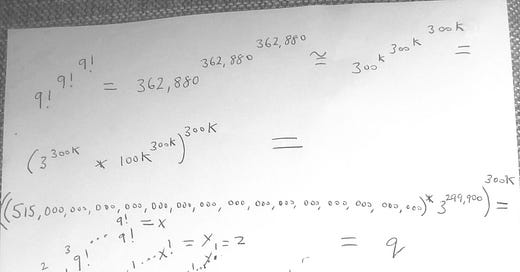 9!^9!^9! = 362,880^362,880^362,880 ≅ 300k^300k^300k =
(3^300k * 100k^300k)^300k =
((515,000,000,000,000,000,000,000,000,000,000,000,000,000,000,000,000)* 3^299,900)^300k =
9!^⋯^9! = x
= q